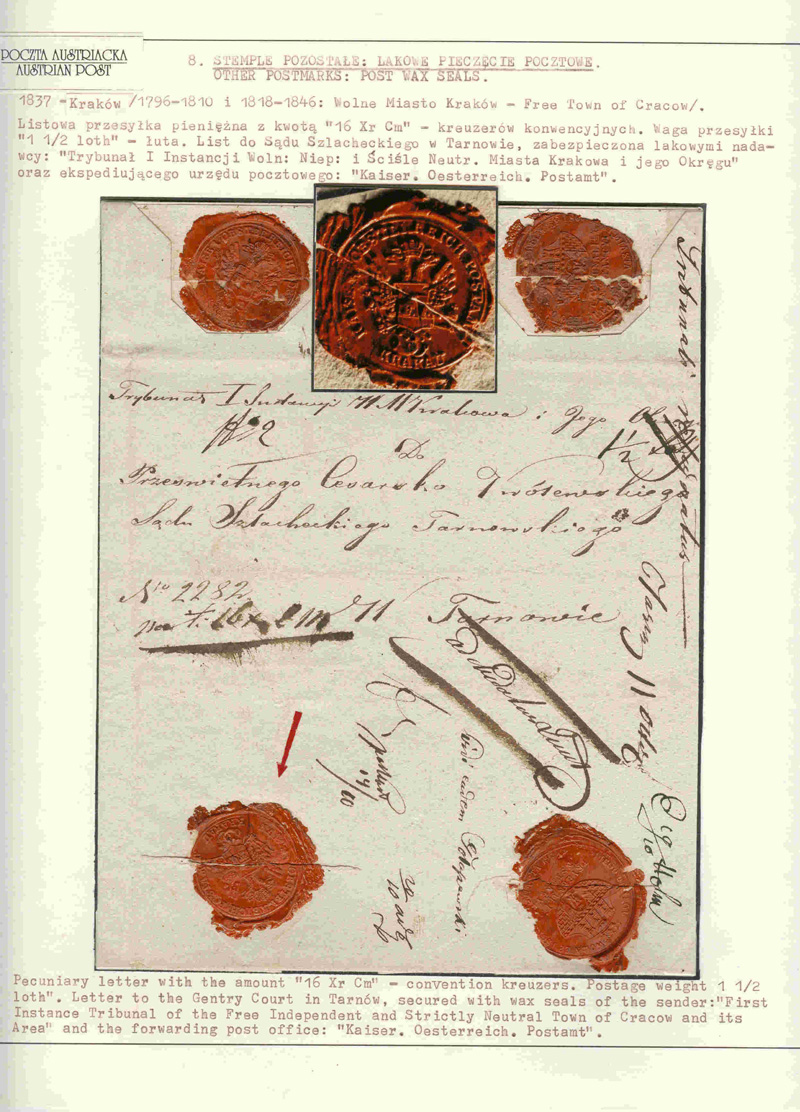 POCZTA AUSTRIACKA
AUSTRIAN POST
8. STEMPLE POZOSTAŁE: LAKOWE PIECZĘCIE POCZTOWE.
OTHER POSTMARKS: POST WAX SEALS.
1837 -Kraków /1796-1810 i 1818-1846: Wolne Miasto Kraków - Free Town of Cracow/.
Listowa przesyłka pieniężna z kwotą "16 Xr Cm" - kreuzerów konwencyjnych. Waga przesyłki
"1 1/2 loth" - łuta. List do Sądu Szlacheckiego w Tarnowie, zabezpieczona lakowymi nada-
wcy: "Trybunał I Instancji Woln: Niep: i Ściśle Neutr. Miasta Krakowa i jego Okręgu"
oraz ekspediującego urzędu pocztowego: "Kaiser. Oesterreich. Postamt".
KAISER. OESTERREICH. POSTAMT
KRAKAU
Trybunał I Instancyi W M Krakowa i Jego
1 1/2
Do
Prześwietnego Cesarsko Królewskiego
Sądu Szlacheckiego Tarnowskiego
Nro 2282
16x Cm
Tarnowie
Pecuniary letter with the amount "16 Xr Cm" - convention kreuzers. Postage weight 1 1/2
loth". Letter to the Gentry Court in Tarnów, secured with wax seals of the sender:"First
Instance Tribunal of the Free Independent and Strictly Neutral Town of Cracow and its
Area" and the forwarding post office: "Kaiser. Oesterreich. Postamt".